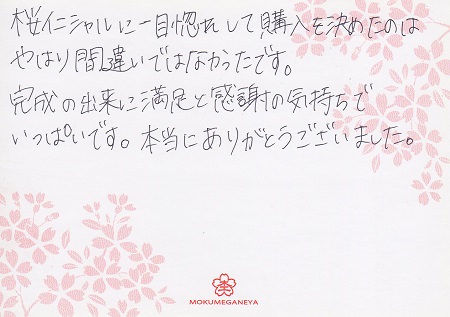 桜イニシャルに一目惚れして購入を決めたのは
やはり間違いではなかったです。
完成の出来に満足と感謝の気持ちで
いっぱいです。本当にありがとうございました。
MOKUMEGANEYA